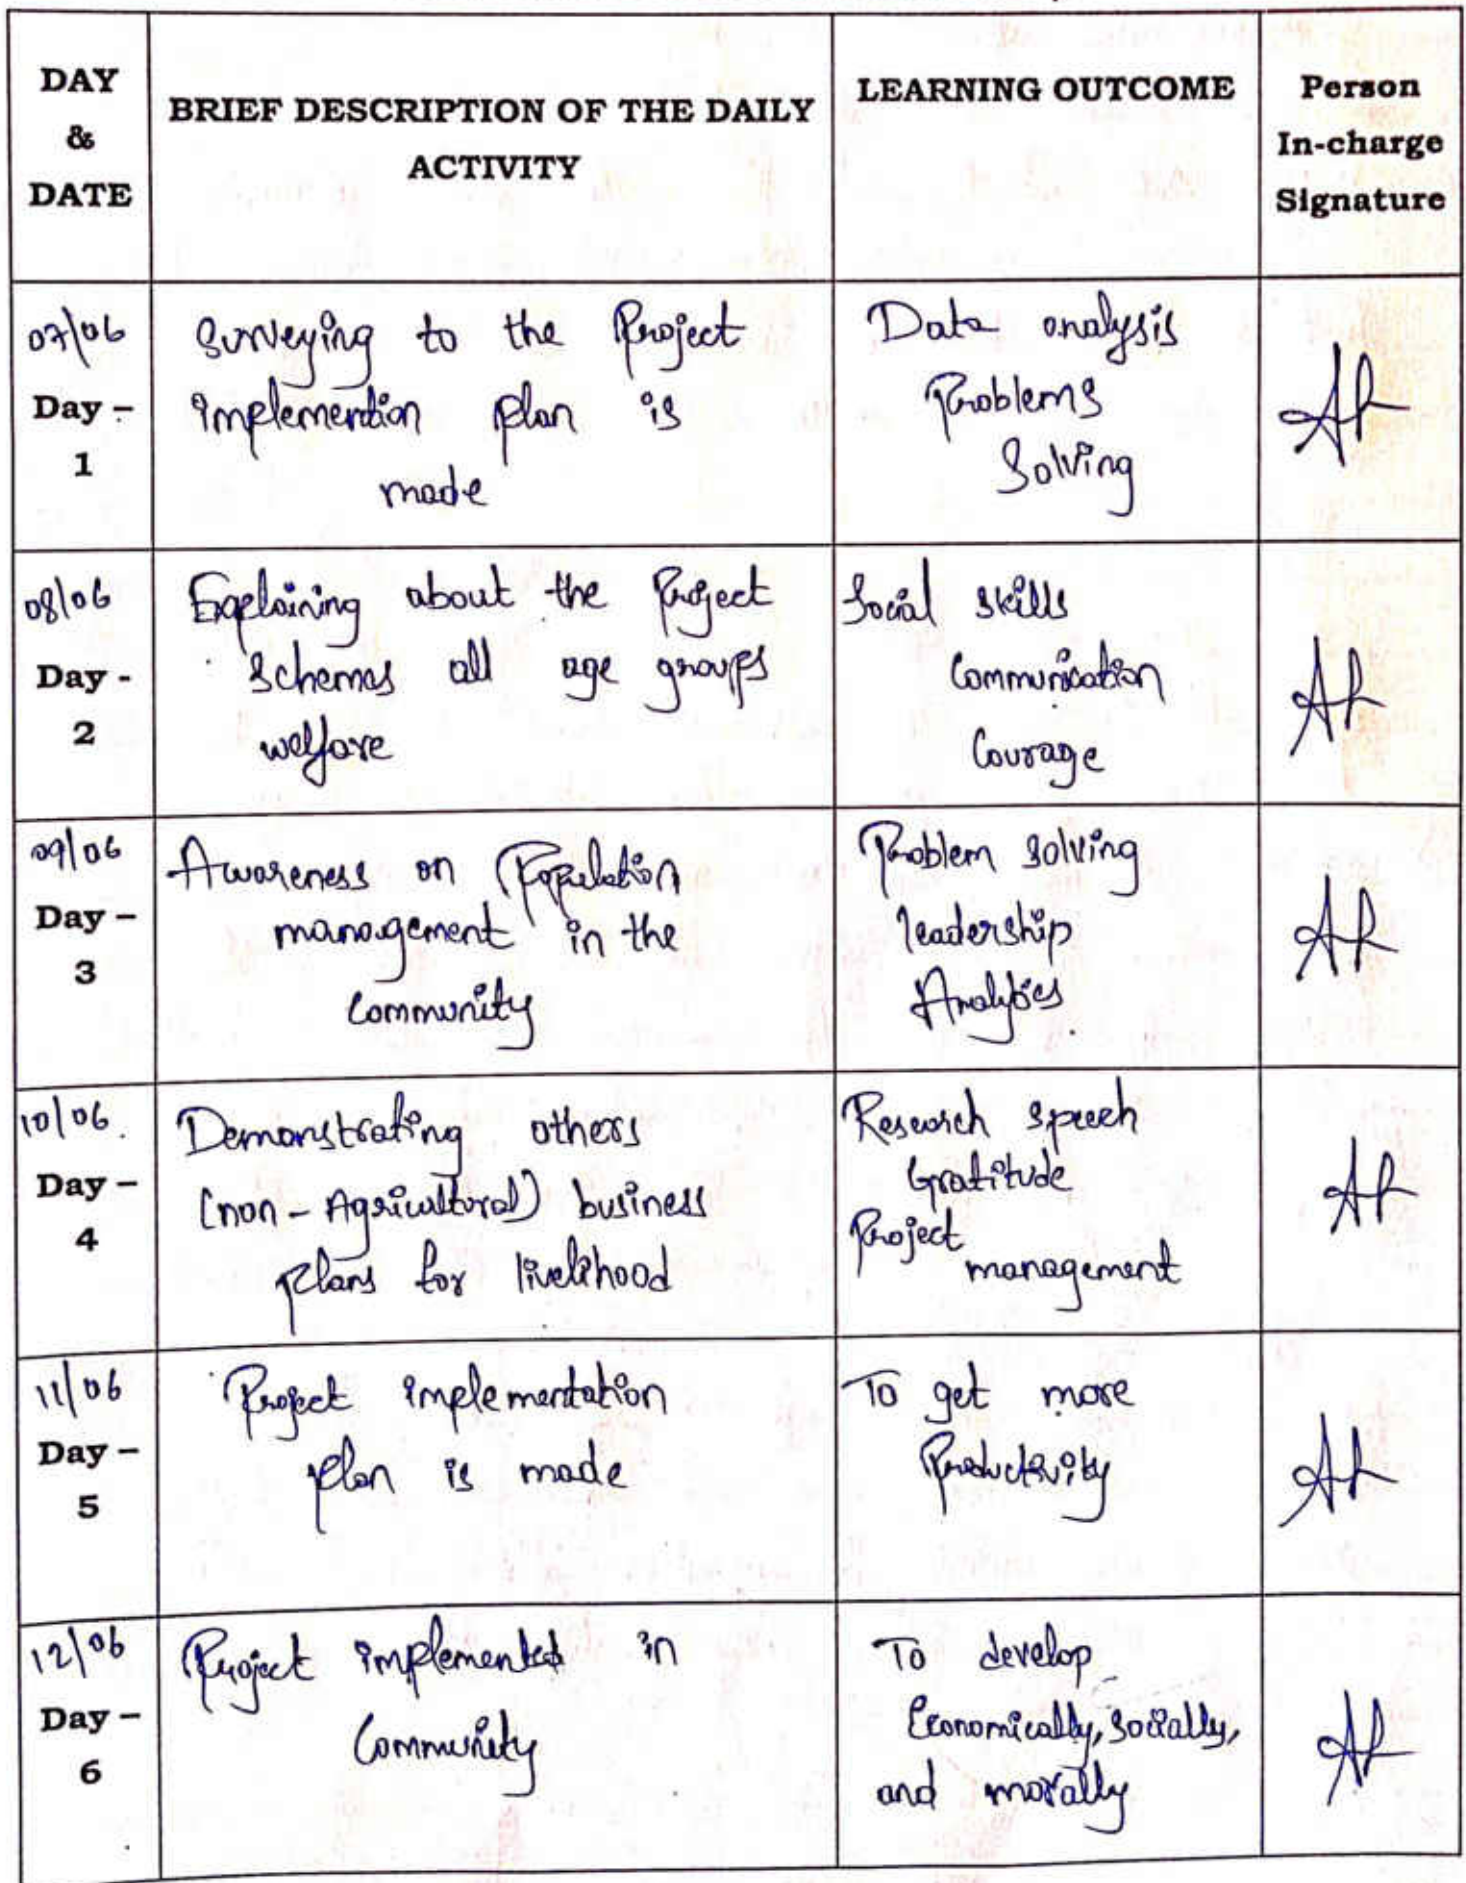 DAY
&
DATE
BRIEF DESCRIPTION OF THE DAILY
ACTIVITY
LEARNING OUTCOME
Person
In-charge
Signature
07/06
Day –
1
Surveying to the Project
implemention plan is
made
Data analysis
Problems
Solving
08/06
Day -
2
Explaining about the Project
Schemas all age groups
welfare
Social skills
Communication
Courage
09/06
Day –
3
Awareness on Population
management in the
Community
Problem solving
leadership
Analytics
10/06.
Day –
4
Demonstrating others
(non-Agricultural) business
plans for livelihood
Research speech
Gratitude
Project
management
11/06
Day –
5
Project implementation
plan is made
To get more
Productivity
12/06
Day –
6
Project implemented in
Community
To develop
Economically, socially,
and morally